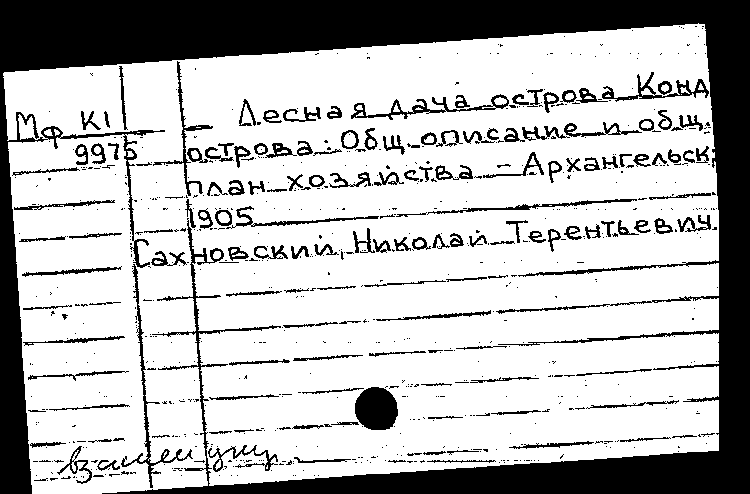 Мф К1 — Лесная дача острова Конд
9975 острова: Общ. описание и общ.
план хозяйства – Архангельск;
1905
Сахновский, Николай Терентьевич
взамен униц.